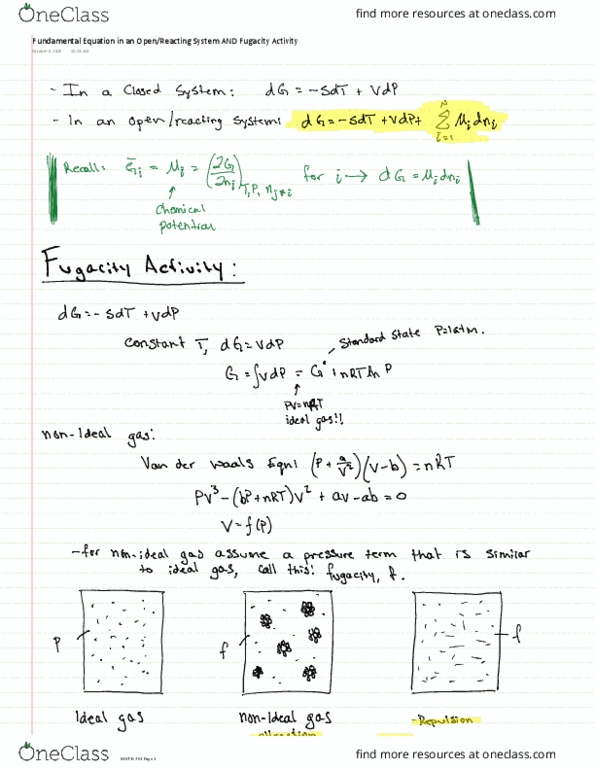 OneClass find more resources at oneclass.com
Fundamental Equation in an Open/Reacting System AND Fugacity Activity
- In a Closed System: dG = -SdT + VdP
- In an open/reacting system: dG = -SdT + VdP + Σ_{i=1}^{N} μ_i dn_i
Recall: Ḡ_i = μ_i = (∂G/∂n_i)_{T, P, n_j≠i} for i → dG = μ_i dn_i
Chemical
potential
Fugacity Activity:
dG = -SdT + VdP
constant T, dG = VdP
Standard State P=1atm.
G = ∫VdP = G° + nRT ln P
PV=nRT
ideal gas!!
non-ideal gas:
Van der Waals Eqn: (P + a/V²)(V-b) = nRT
PV³ - (bP + nRT)V² + aV - ab = 0
V = f(P)
- for non-ideal gas assume a pressure term that is similar
to ideal gas, call this: fugacity, f.
P f f
Ideal gas non-ideal gas - Repulsion
attraction
OneClass find more resources at oneclass.com